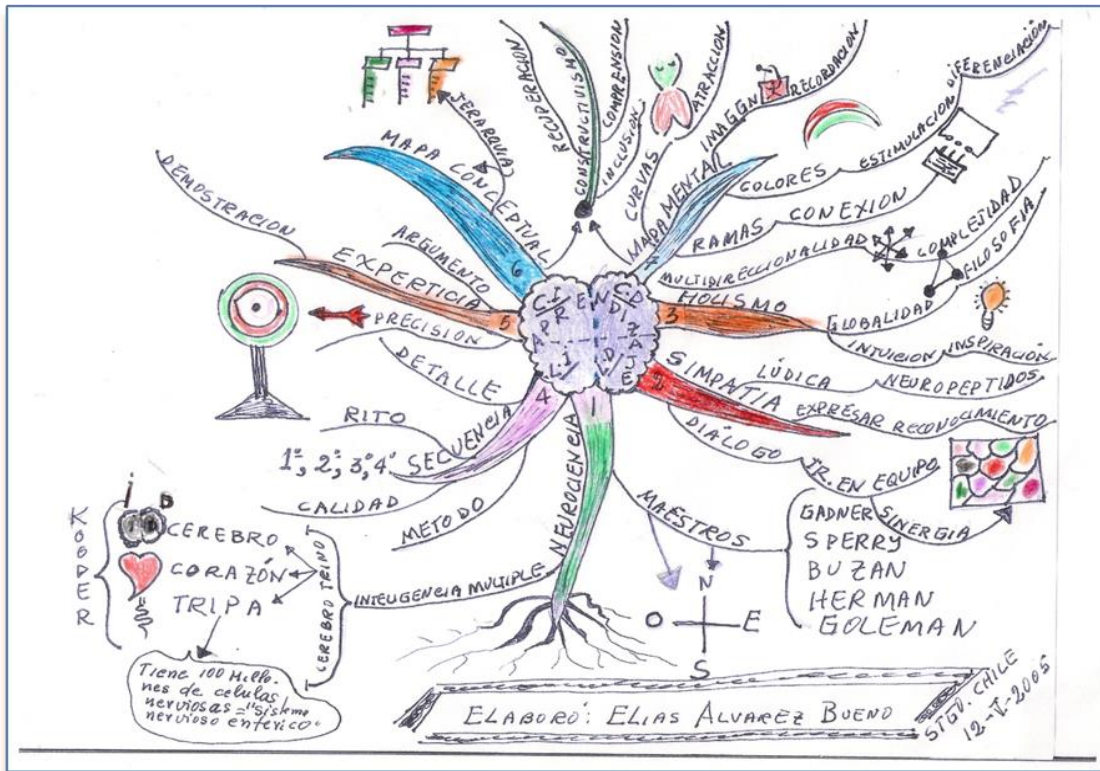 C.I
C.D
APRENDIZAJE
L.I
L.D
1
NEUROCIENCIA
MAESTROS
GADNER
SPERRY
BUZAN
HERMAN
GOLEMAN
N
O
E
S
INTELIGENCIA MULTIPLE
CEREBRO TRINO
CEREBRO
CORAZÓN
TRIPA
i
D
KOOPER
Tiene 100 Millo-
nes de celulas
nerviosas = "sistema
nervioso enterico".
2
SIMPATIA
LÚDICA
NEUROPEPTIDOS
EXPRESAR RECONOCIMIENTO
DIÁLOGO
TR. EN EQUIPO
SINERGIA
3
HOLISMO
MULTIDIRECCIONALIDAD
COMPLEJIDAD
GLOBALIDAD
FILOSOFIA
INTUICION
INSPIRACIÓN
4
SECUENCIA
DETALLE
RITO
1º, 2º, 3º, 4º
CALIDAD
METODO
5
EXPERTICIA
DEMOSTRACION
ARGUMENTO
PRECISION
6
MAPA CONCEPTUAL
JERARQUIA
CONSTRUCTIVISMO
RECUPERACION
COMPRENSION
INCLUSION
7
MAPA MENTAL
CURVAS
ATRACCION
IMAGEN
RECORDACION
COLORES
ESTIMULACION
DIFERENCIACIÓN
RAMAS
CONEXION
ELABORÓ: ELIAS ALVAREZ BUENO
STGO. CHILE
12-V-2005